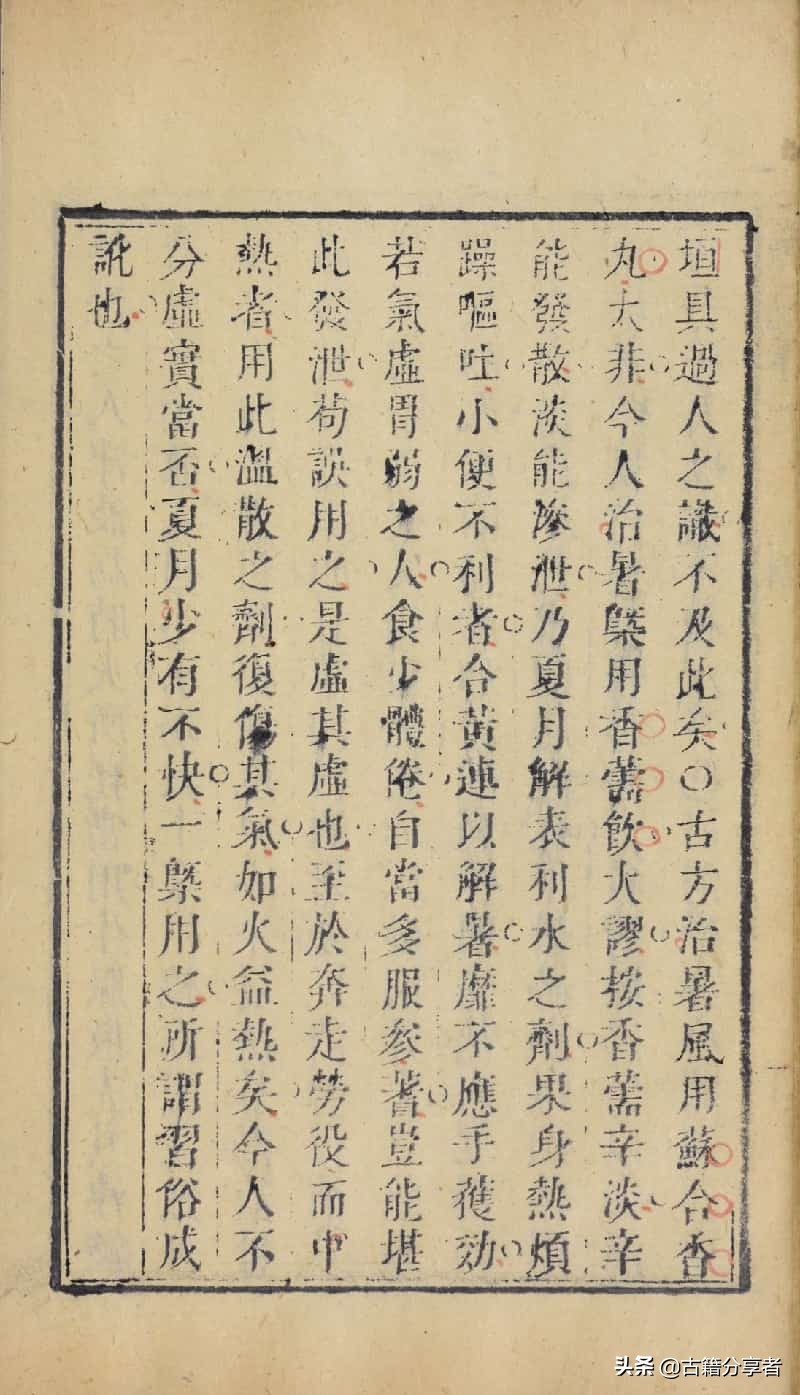 垣具過人之識不及此矣○古方治暑風用蘇合香
丸大非今人治暑槩用香薷飲大謬按香薷辛淡辛
能發散淡能滲泄乃夏月解表利水之劑果身熱煩
躁嘔吐小便不利者合黃連以解暑靡不應手獲効
若氣虛胃弱之人食少體倦自當多服參耆豈能堪
此發泄苟誤用之是虛其虛也至於奔走勞役而中
熱者用此溫散之劑復傷其氣如火益熱矣今人不
分虛實當否夏月少有不快一槩用之所謂習俗成
訛也
头条 @古籍分享者